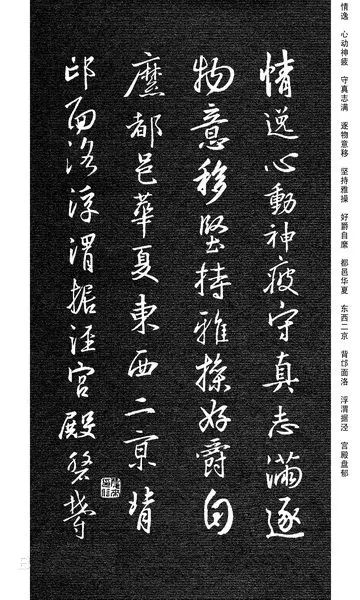 情逸心動神疲守真志滿逐
物意移堅持雅操好爵自
縻都邑華夏東西二京背
邙面洛浮渭據涇宮殿盤鬱
情逸 心动神疲 守真志满 逐物意移 坚持雅操 好爵自縻 都邑华夏 东西二京 背邙面洛 浮渭据泾 宫殿盘郁